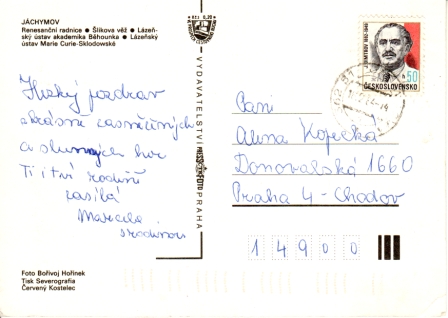 JÁCHYMOV
Renesanční radnice • Šlikova věž • Lázeň-
ský ústav akademika Běhounka • Lázeňský
ústav Marie Curie-Sklodowské
Hezký pozdrav
z krásně zasněžených
a slunných hor
Ti i tvé rodině
zasílá
Marcela
s rodinou
Foto Bořivoj Hořínek
Tisk Severografia
Červený Kostelec
VYDAVATELSTVÍ PRAHA
50
ČESKOSLOVENSKO
Paní
Alena Kopecká
Donovalská 1660
Praha 4 - Chodov
14900